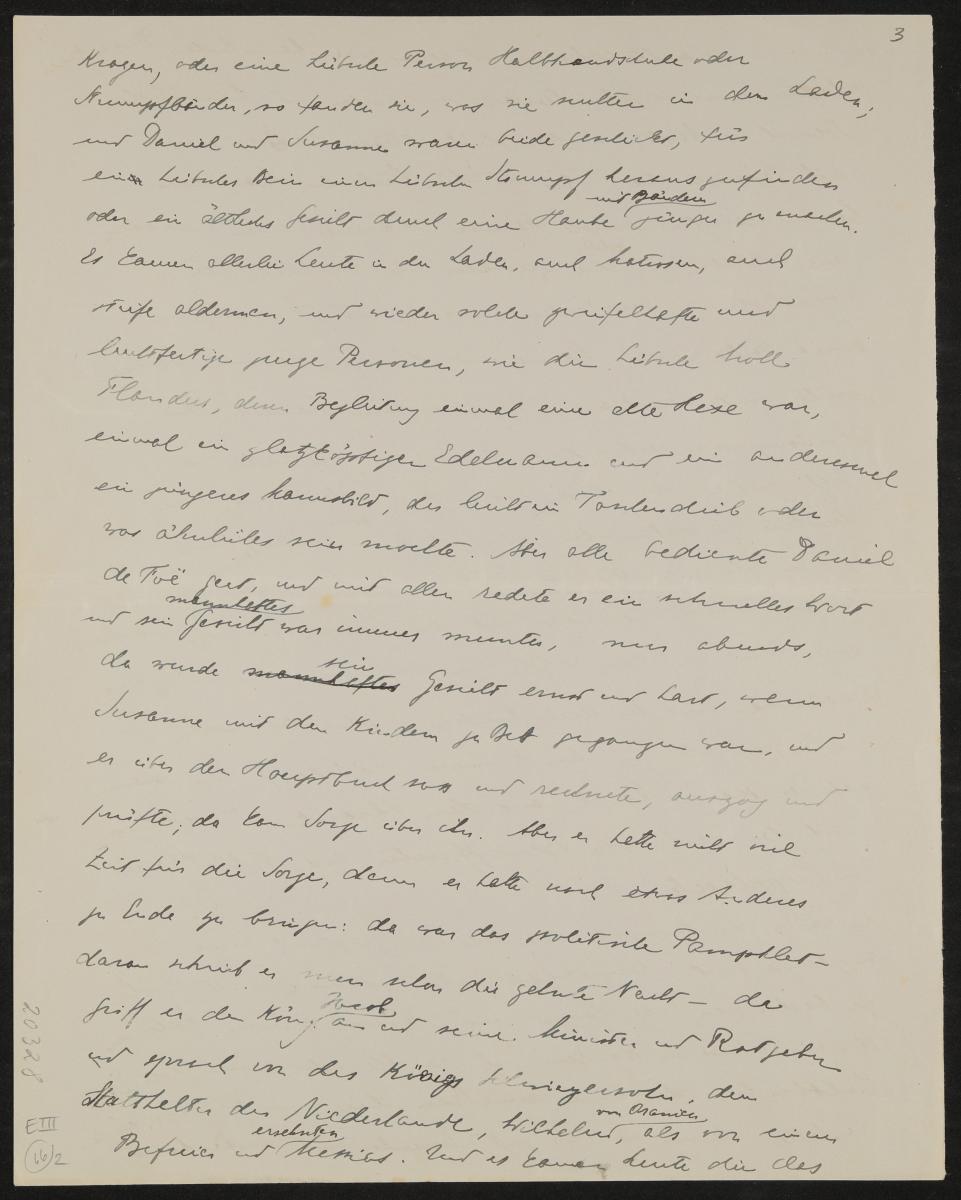 3
Kragen, oder eine hübsche Person Halbhandschuhe oder
Strumpfbänder, so fanden sie, was sie suchten in dem Laden,
und Daniel und Susanne waren beide geschickt, fürs
ein hübsches Bein einen hübschen Strumpf herauszufinden
und Bändern
oder ein ältliches Gesicht durch eine Haube jünger zu machen.
Es kamen allerlei Leute in den Laden, auch Matrosen, auch
steife aldermen, und wieder solche zweifelhafte und
leichtfertige junge Personen, wie die hübsche Moll
Flanders, deren Begleitung einmal eine alte Hexe war,
einmal ein glatzköpfiger Edelmann und ein anderesmal
ein jüngeres Mannsbild, das leicht ein Taschendieb oder
was ähnliches sein mochte. Aber alle bediente Daniel
de Foë gern, und mit allen redete er ein schnelles Wort
mannhaftes
und sein Gesicht war immer munter, nur abends,
sein
da wurde mannhaftes Gesicht ernst und hart, wenn
Susanne mit den Kindern zu Bett gegangen war, und
er über dem Hauptbuch sass und rechnete, auszog und
prüfte; da kam Sorge über ihn. Aber er hatte nicht viel
Zeit für die Sorge, denn er hatte noch etwas Anderes
zu Ende zu bringen: da war das politische Pamphlet –
daran schrieb er nun schon die zehnte Nacht – da
Jacob
griff er den König an und seine Minister und Ratgeber
und sprach von des Königs Schwiegersohn, dem
von Oranien
Statthalter der Niederlande, Wilhelm, als von einem
ersehnten
Befreier und Messias. Und es kamen Leute die das
20328
E III
16/2